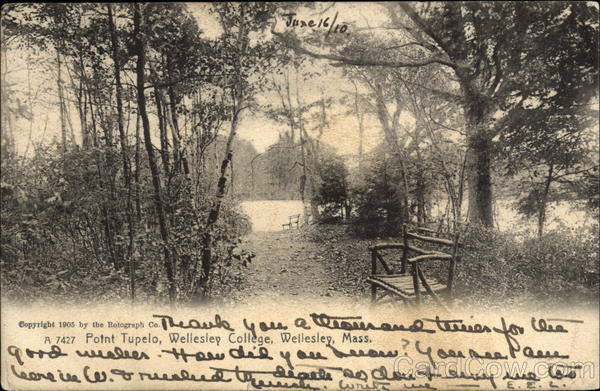 June 16/10
Copyright 1905 by the Rotograph Co.
A 7427 Point Tupelo, Wellesley College, Wellesley, Mass.
Thank you a thousand times for the
good wishes. How did you know? You see I am
here in W. & needed to
CardCow.com